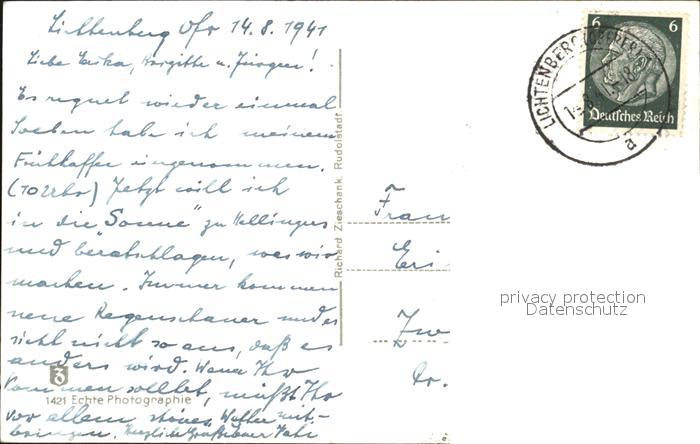 Lichtenberg Ofr 14.8.1941
Liebe Erika, Brigitte u. Jürgen!
Es regnet wieder einmal
Soeben habe ich meinen
Frühkaffee eingenommen.
(10 Uhr) Jetzt will ich
in die "Sonne" zu
und beratschlagen, was wir
machen. Immer kommen
neue Regenschauer und es
sieht nicht so aus, daß es
anders wird. Wenn Ihr
kommen solltet, müßt Ihr
vor allem schönes Wetter mit-
bringen. Herzliche Grüße Euer Vati
1421 Echte Photographie
Richard Zieschank, Rudolstadt
6 6
Deutsches Reich
LICHTENBERG (OBERFR)
a
Frau
Eri
Zw
Dr.
privacy protection
Datenschutz